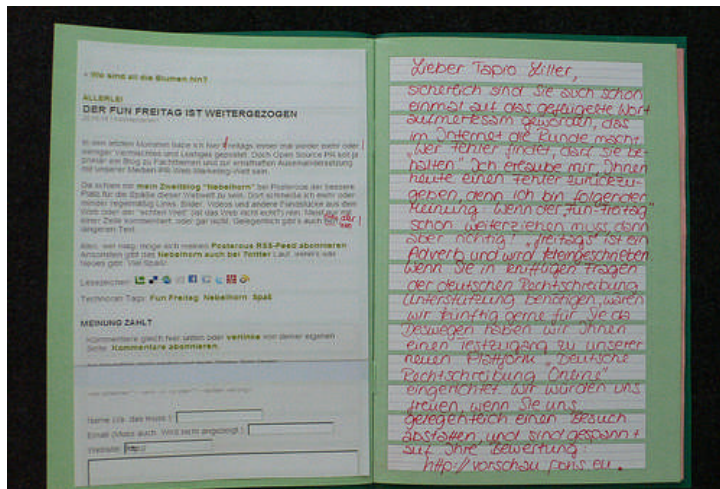 « Wo sind all die Blumen hin?
ALLERLEI
DER FUN FREITAG IST WEITERGEZOGEN
In den letzten Monaten habe ich hier Freitags immer mal wieder mehr oder
weniger Vermischtes und Lustiges gepostet. Doch Open Source PR soll ja
primär ein Blog zu Fachthemen und zur ernsthaften Auseinandersetzung
mit unserer Medien-PR-Web-Marketing-Welt sein.
Da schien mir mein Zweitblog "Nebelhorn" bei Posterous der bessere
Platz für die Späße dieser Webwelt zu sein. Dort schmeiße ich mehr oder
minder regelmäßig Links, Bilder, Videos und andere Fundstücke aus dem
Web oder der "echten Welt" (ist das Web nicht echt?) rein. Meist nur
einer Zeile kommentiert, oder gar nicht. Gelegentlich gibt's auch
längeren Text.
Also, wer mag, möge sich meinen Posterous RSS-Feed abonnieren
Ansonsten gibt das Nebelhorn auch bei Twitter Laut, wenn's was
Neues gibt. Viel Spaß!
Lesezeichen:
Technorati Tags: Fun Freitag, Nebelhorn, Spaß
MEINUNG ZÄHLT
Kommentiere gleich hier unten oder verlinke von deiner eigenen
Seite. Kommentare abonnieren.
Name (Ja, das muss.)
Email (Muss auch. Wird nicht angezeigt.)
Website http://
Lieber Tapio Liller,
sicherlich sind Sie auch schon
einmal auf das geflügelte Wort
aufmerksam geworden, das
im Internet die Runde macht:
„Wer Fehler findet, darf sie be-
halten." Ich erlaube mir, Ihnen
heute einen Fehler zurückzu-
geben, denn ich bin folgender
Meinung: Wenn der „Fun-Freitag"
schon weiterziehen muss, dann
aber richtig! „freitags" ist ein
Adverb und wird kleingeschrieben.
Wenn Sie in kniffligen Fragen
der deutschen Rechtschreibung
Unterstützung benötigen, wären
wir künftig gerne für Sie da.
Deswegen haben wir Ihnen
einen Testzugang zu unserer
neuen Plattform „Deutsche
Rechtschreibung Online"
eingerichtet. Wir würden uns
freuen, wenn Sie uns
gelegentlich einen Besuch
abstatten, und sind gespannt
auf Ihre Bewertung:
http://vorschau.pons.eu.